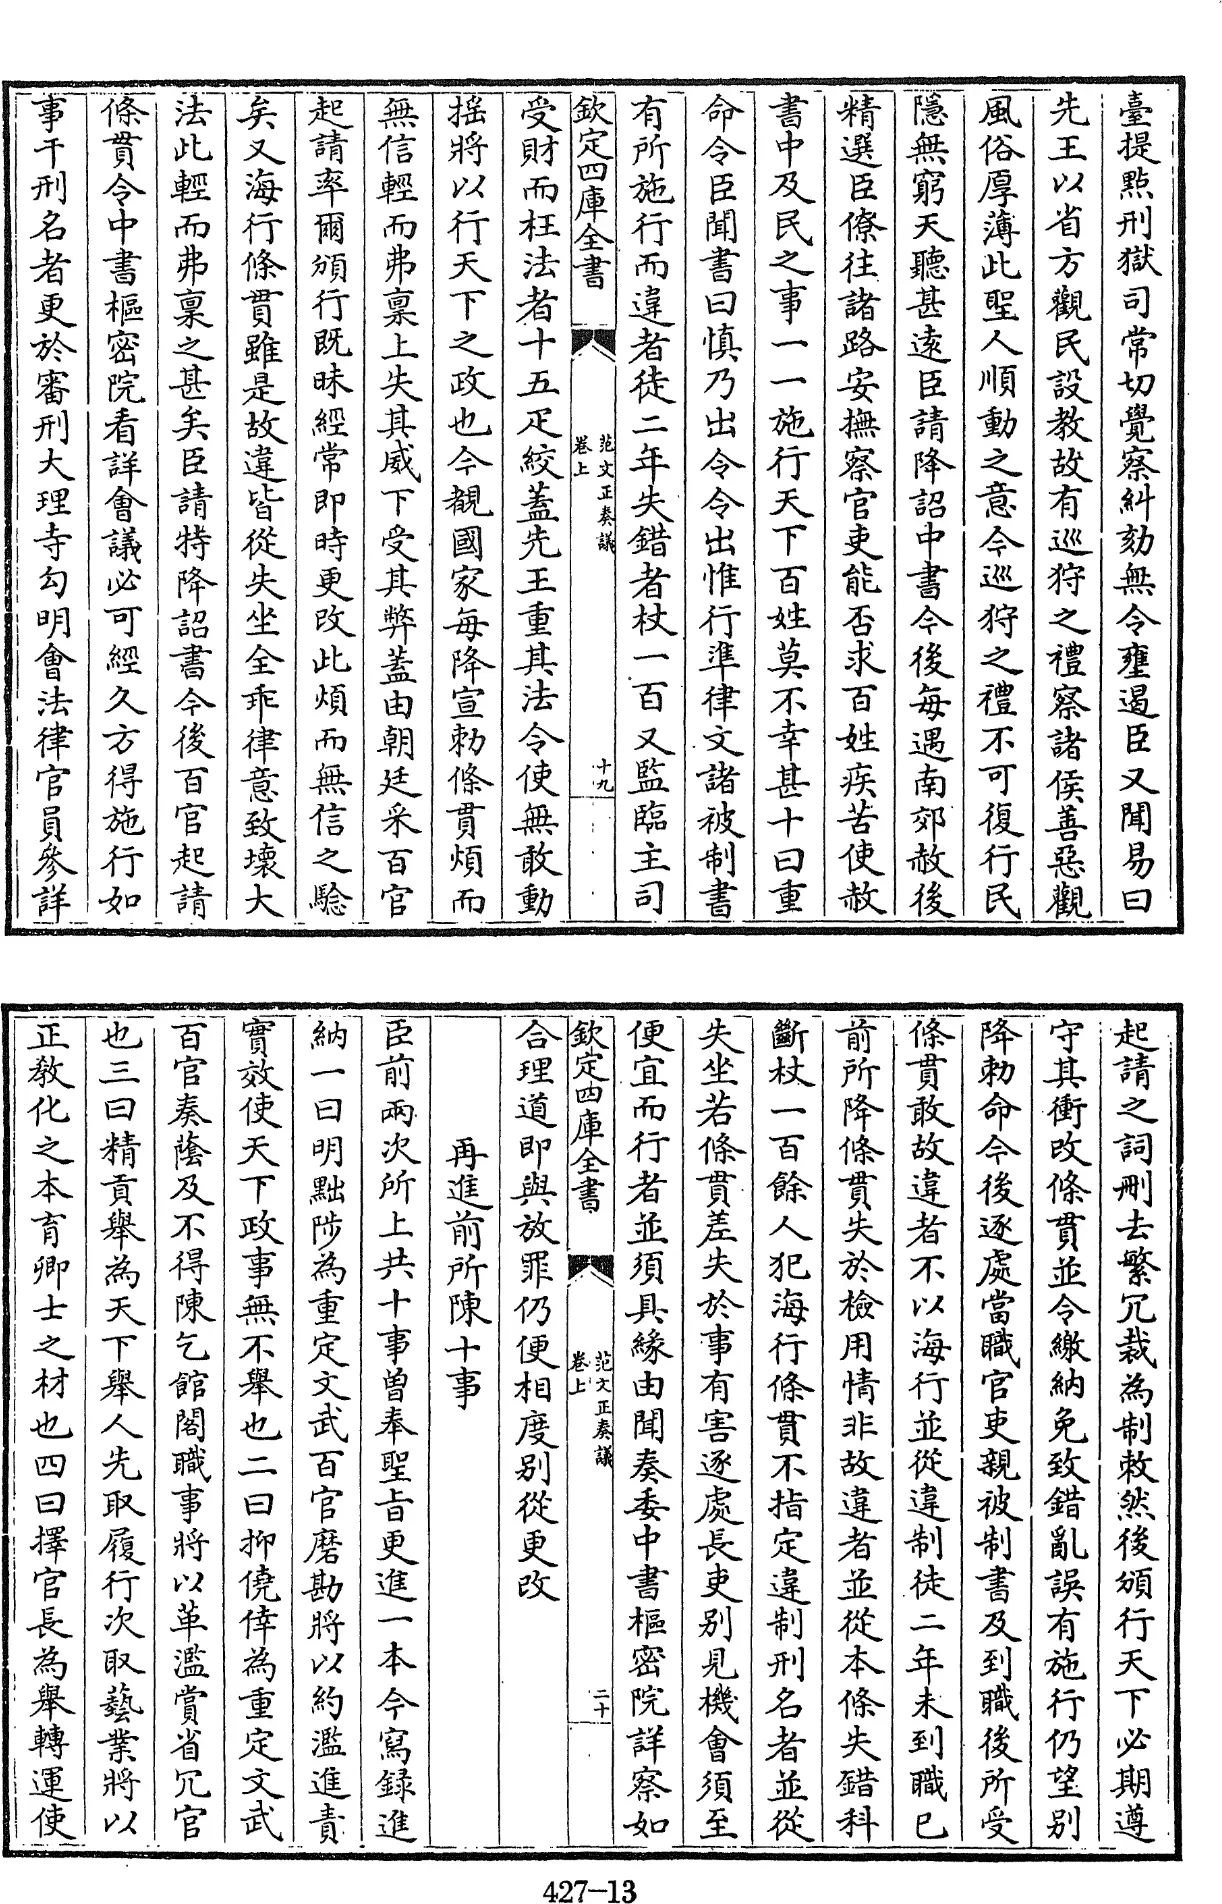 臺提點刑獄司常切覺察糾劾無令壅遏臣又聞易曰
先王以省方觀民設教故有巡狩之禮察諸侯善惡觀
風俗厚薄此聖人順動之意今巡狩之禮不可復行民
隱無窮天聽甚遠臣請降詔中書今後每遇南郊赦後
精選臣僚往諸路安撫察官吏能否求百姓疾苦使赦
書中及民之事一一施行天下百姓莫不幸甚十曰重
命令臣聞書曰慎乃出令令出惟行準律文諸被制書
有所施行而違者徒二年失錯者杖一百又監臨主司
欽定四庫全書
范文正奏議
卷上
十九
受財而枉法者十五疋絞蓋先王重其法令使無敢動
搖將以行天下之政也今覩國家每降宣勅條貫煩而
無信輕而弗稟上失其威下受其弊蓋由朝廷采百官
起請率爾頒行既昧經常即時更改此煩而無信之驗
矣又海行條貫雖是故違皆從失坐全乖律意致壞大
法此輕而弗稟之甚矣臣請特降詔書今後百官起請
條貫令中書樞密院看詳會議必可經久方得施行如
事干刑名者更於審刑大理寺勾明會法律官員參詳
起請之詞刪去繁冗裁為制敕然後頒行天下必期遵
守其衝改條貫並令繳納免致錯亂誤有施行仍望別
降勅命今後逐處當職官吏親被制書及到職後所受
條貫敢故違者不以海行並從違制徒二年未到職已
前所降條貫失於檢用情非故違者並從本條失錯科
斷杖一百餘人犯海行條貫不指定違制刑名者並從
失坐若條貫差失於事有害逐處長吏別見機會須至
便宜而行者並須具緣由聞奏委中書樞密院詳察如
欽定四庫全書
范文正奏議
卷上
二十
合理道即與放罪仍便相度別從更改
再進前所陳十事
臣前兩次所上共十事曾奉聖旨更進一本今寫録進
納一曰明黜陟為重定文武百官磨勘將以約濫進責
實效使天下政事無不舉也二曰抑僥倖為重定文武
百官奏蔭及不得陳乞館閣職事將以革濫賞省冗官
也三曰精貢舉為天下舉人先取履行次取藝業將以
正教化之本育卿士之材也四曰擇官長為舉轉運使
427-13